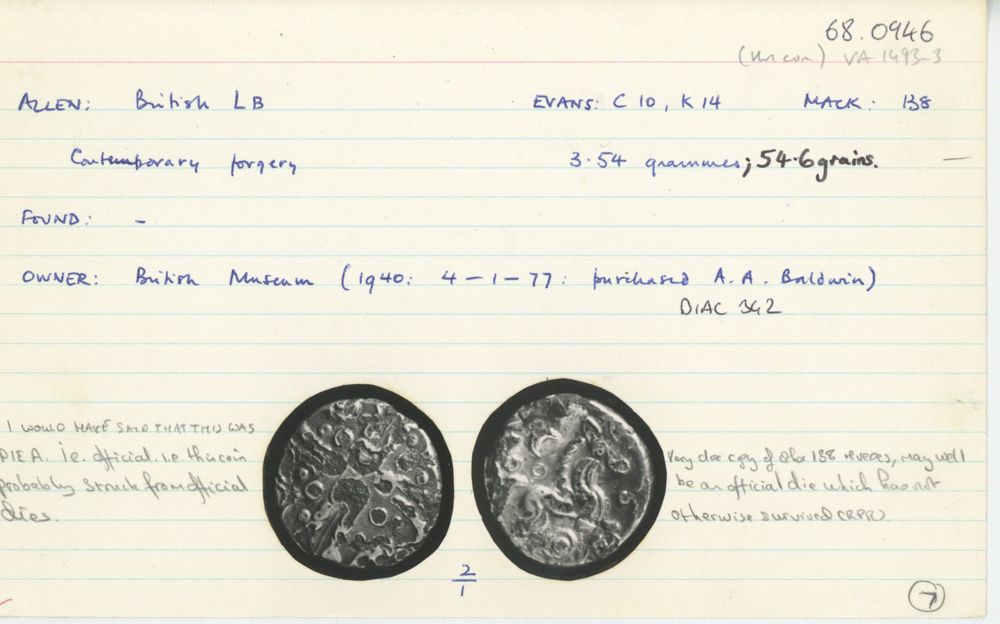 68.0946
(Uncon) VA 1493-3
ALLEN: British LB EVANS: C 10, K 14 MACK: 138
Contemporary forgery 3.54 grammes; 54.6 grains. —
FOUND: -
OWNER: British Museum (1940: 4-1-77: purchased A.A. Baldwin)
DIAC 342
I WOULD HAVE SAID THAT THIS WAS
DIE A. i.e. official. i.e. this coin
probably struck from official
dies.
Very close copy of 138 reverses, may well
be an official die which has not
otherwise survived (RPR).
2
1
7